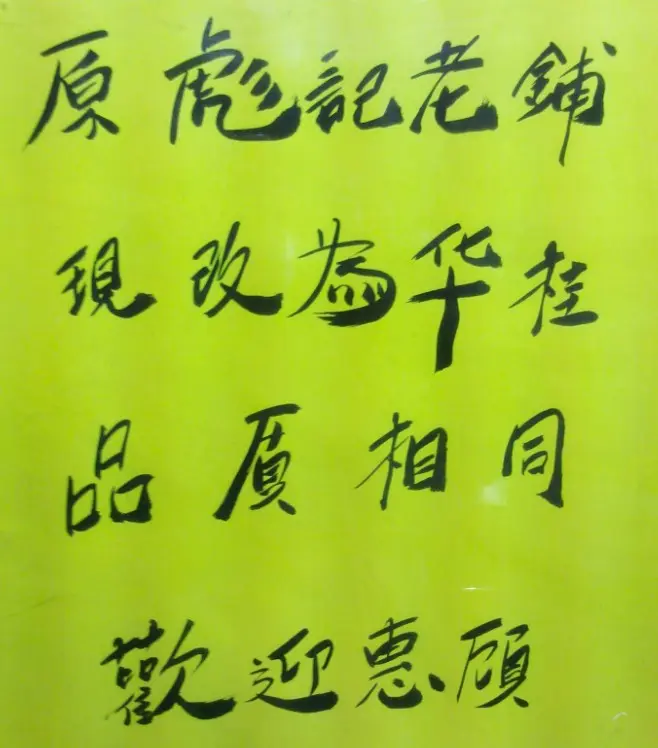 原彪記老鋪
現改為华桂
品質相同
歡迎惠顧